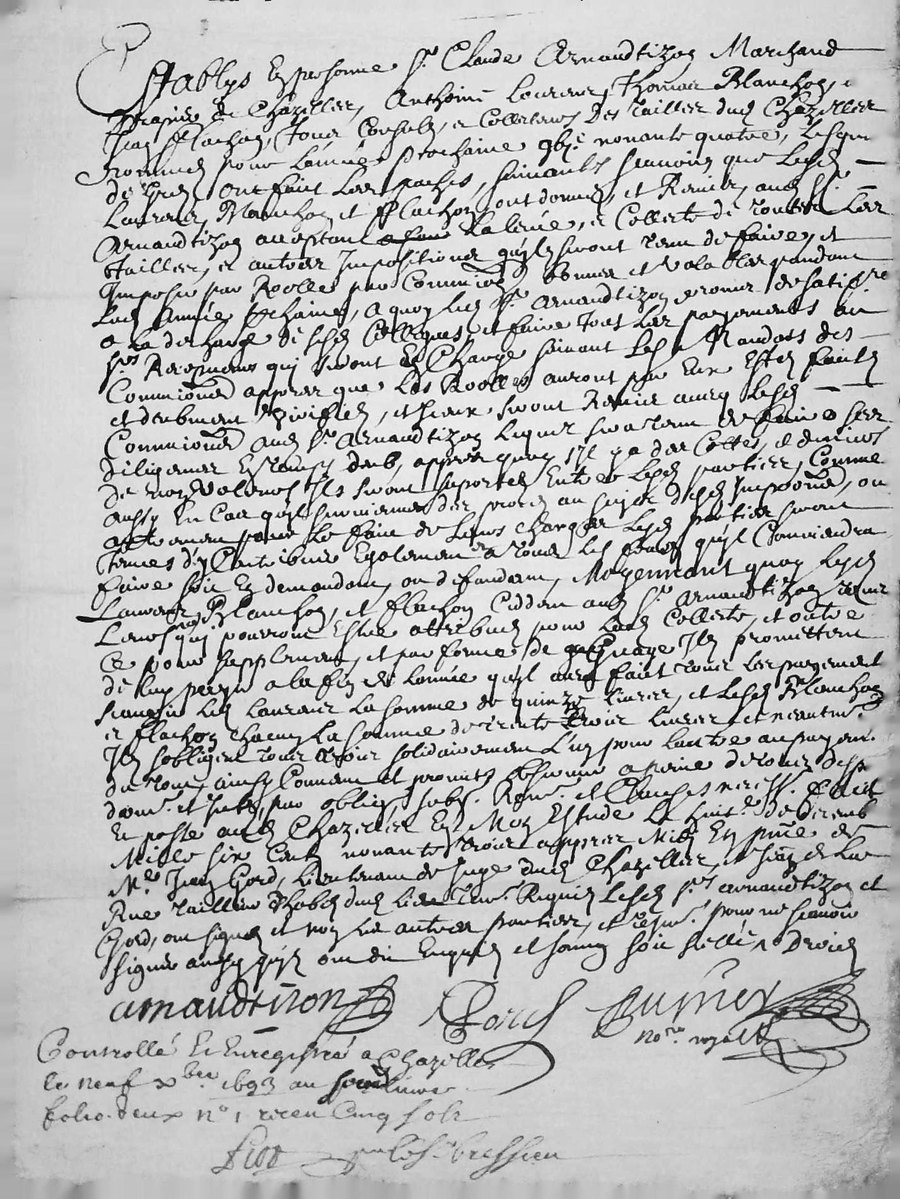 Establys en personne Sr. Claude Arnaudtizon Marchand
drapier de Chazelles, Anthoine Laurens, Thomas Blanchon, e
Jean Flachon, tous Consulz, e Collecteurs des tailles dud Chazelles
nommes pour l'année prochaine gbje nonante quatre, lesquelz
de gré ont faict les paches, suivants scavoir que lesd
Laurens, Blanchon et Flachon ont donné, et remis, aud Sr.
Arnaudtizon acceptant la levée, e Collecte de toutes les
tailles, e autres Impositions qu'ils seront tenu de faire, et
Imposer par Roolles par Commissions bonnes et valables pandant
lad année pchaine, a quoy led Sr. Arnaudtizon promet de satisfre
a la descharge de sesd Collegues et faire tout les payements au
Srs Receveurs qui seront En Charge suivant les Mandats des
Commissions appres que lesd Roolles auront par Eux Estés faictz
et deubment veriffiés, et Iceux seront Remis avecq lesd
Commissions aud Sr. Arnaudtizon lequel sera tenu de faire ses
diligences En temps deub, appres quoy s'il y a des Cottes,
de non valeurs Ils seront suportés Entre lesd parties, Comme
aussy En Cas qu'il survienne des proces au sujet desd Impions, ou
autrement pour le faict de leurs charges lesd parties seront
tenues d'y Contribuer Egalement a tous les frais qu'il Conviendra
faire soit En demandant, ou deffandant, Moyennant quoy lesd
Laurens, Blanchon, et Flachon Ceddent aud Sr. Arnaudtizon
qui pourront Estre attribués pour lad Collecte, et outre
Ce pour supplement, et par forme de Ils promettent
de luy payer a la fin de l'année qu'il aura faict tous les payement
scavoir led Laurens la somme de quinze livres, et lesd Blanchon
e Flachon chacun la somme de trente trois livres
Ils s'obligent tous trois solidairement l'un pour l'autre au payemt.
du tout, ainsy Convenu et promis observer a peine de tous desp
dom. et Intz, par oblig. subm. Ren. et Clauses necess. Faict
Et passé aud Chazelles En Mon Estude le huit. de decemb
Mille six Centz nonante trois appres Midy En pnce de
Me. Jean Gord, lieutenant de Juge dud Chazelles, et
Rue tailleur d'habis dud lieu tem. Requis lesd Sr. Arnaudtizon et
Gord, ont signé et non les autres parties, et tesm. pour ne scavoir
signer ainsy qu'ilz ont dit Enquis et soit sellé
arnaudtizon Gord
Nore royal
Controllé Et Enregistré a Chazelles
le neuf xbre 1693 au livre
folio deux no 1 receu Cinq solz